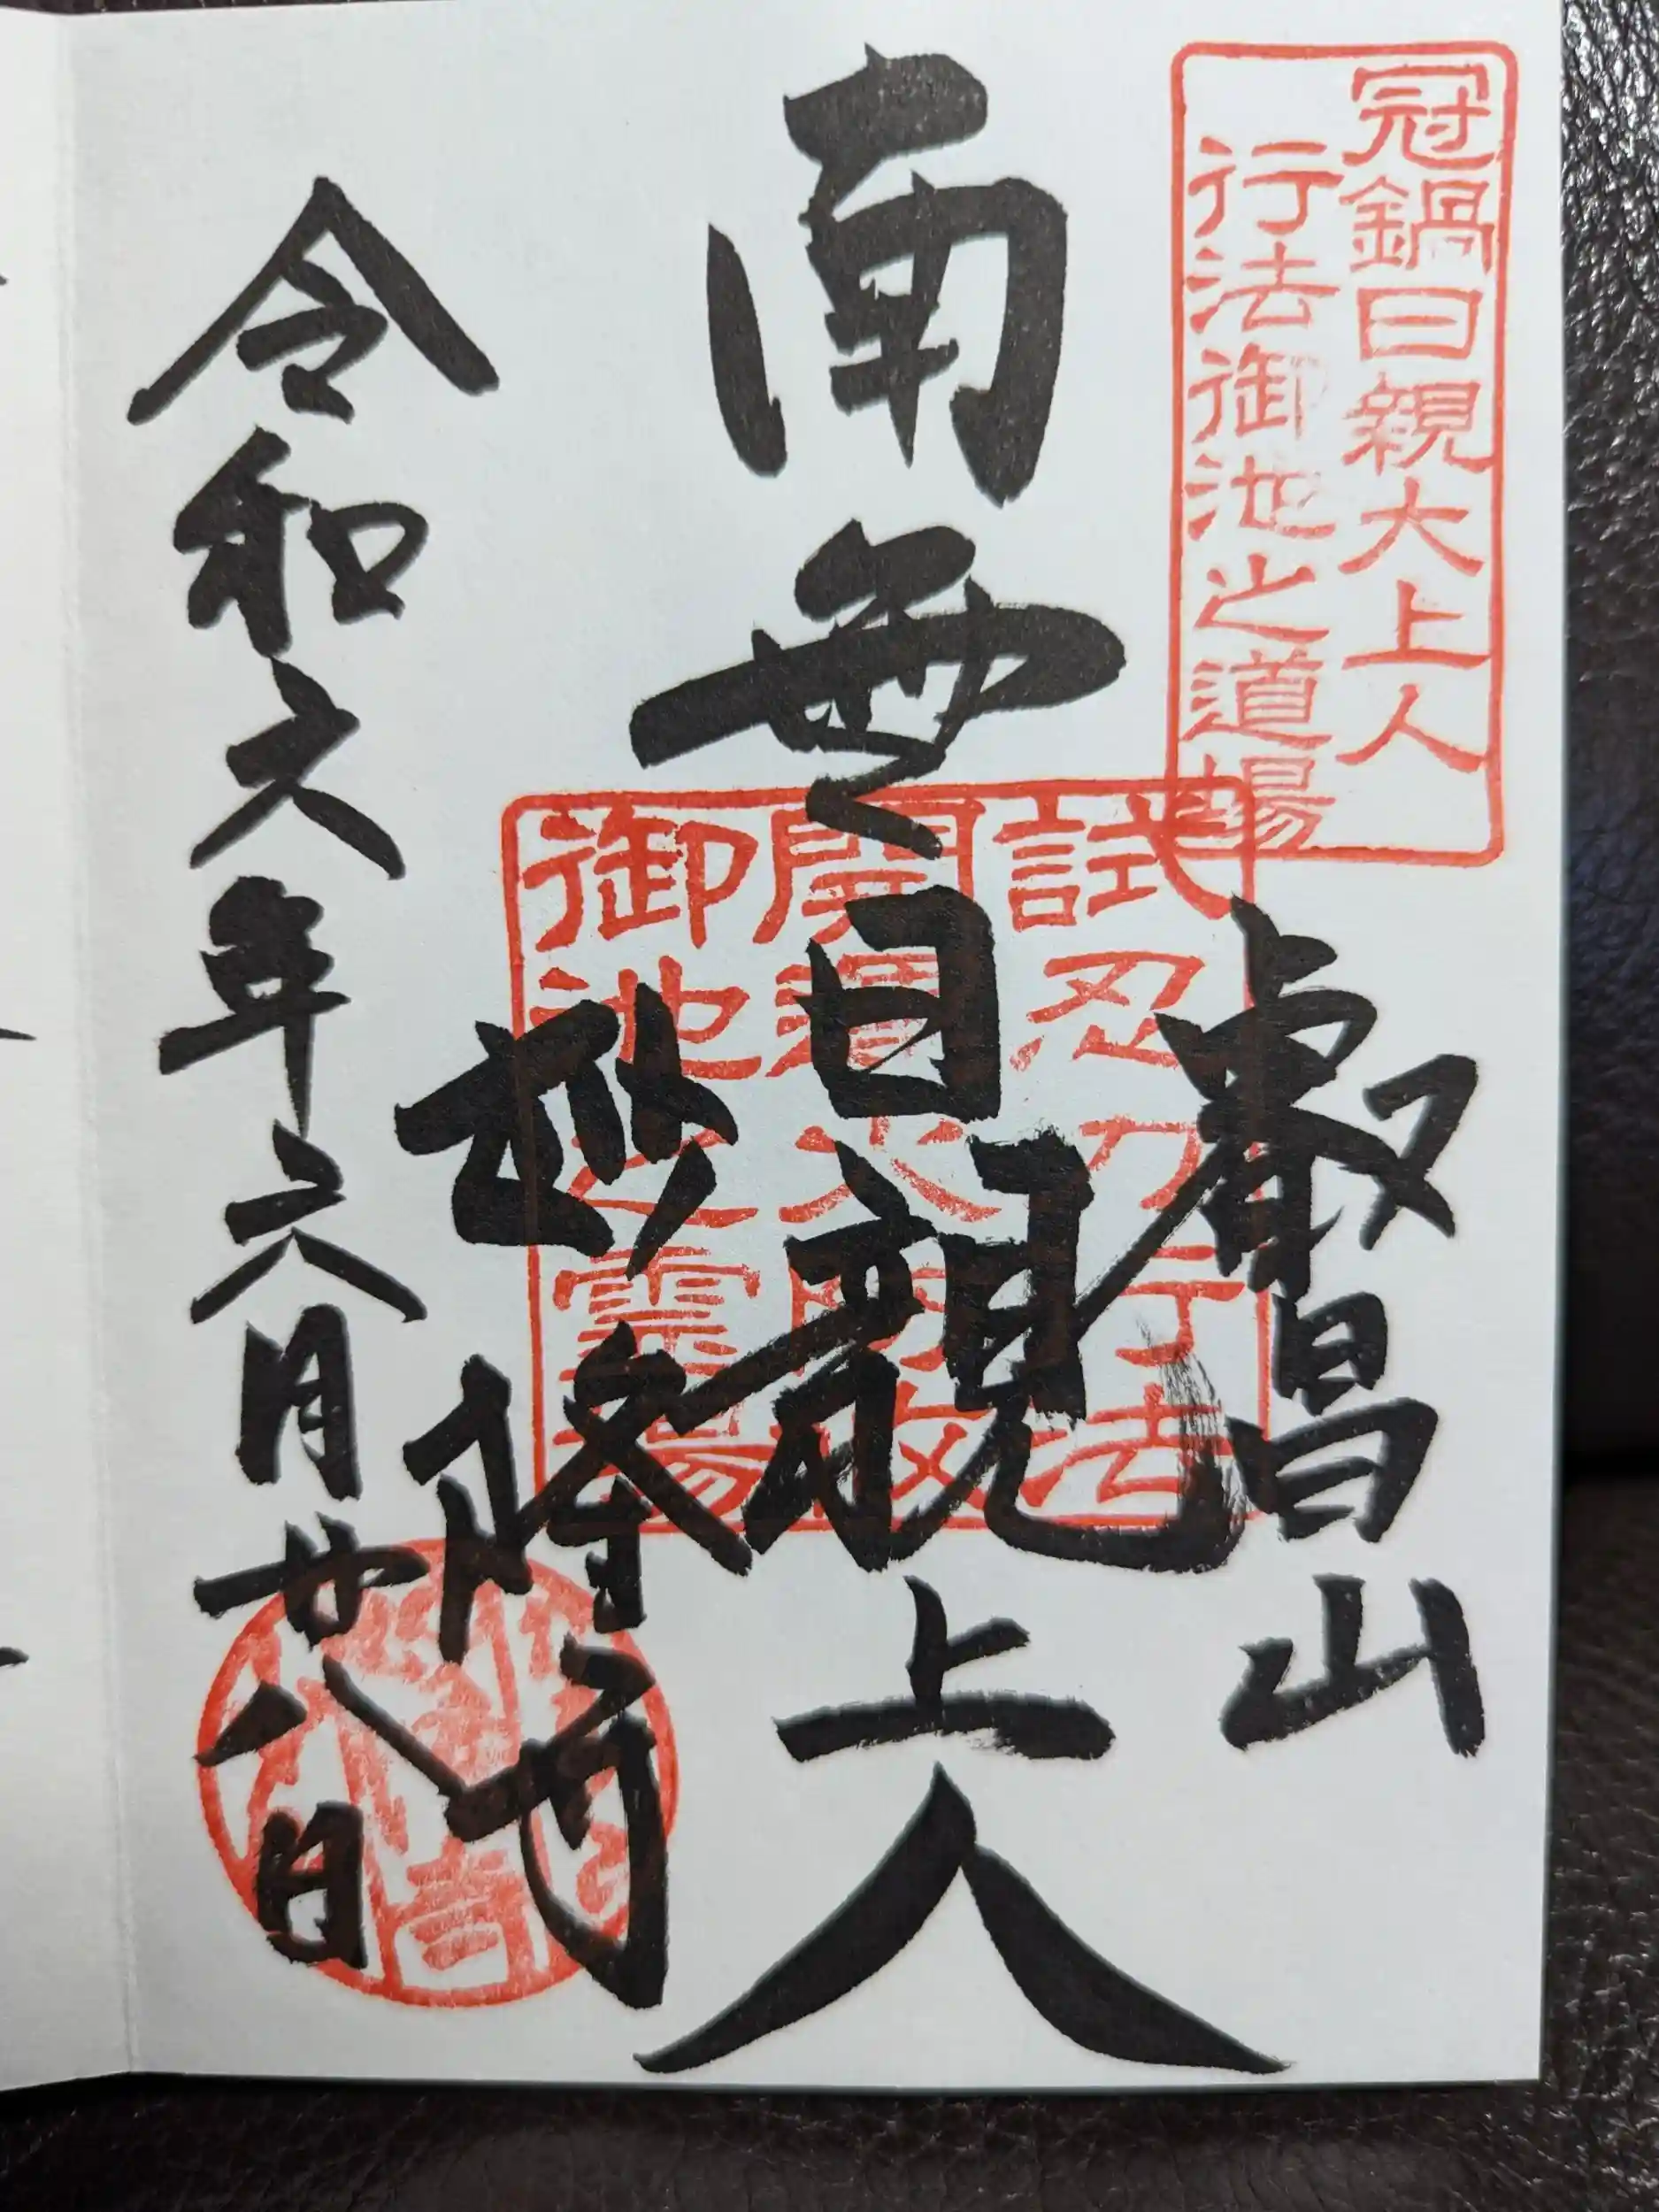 冠鍋日親大上人
行法御池之道場
叡昌山
南無日親上人
試忍力行法
開道
御池之霊場
妙隆寺
令和六年六月廿八日